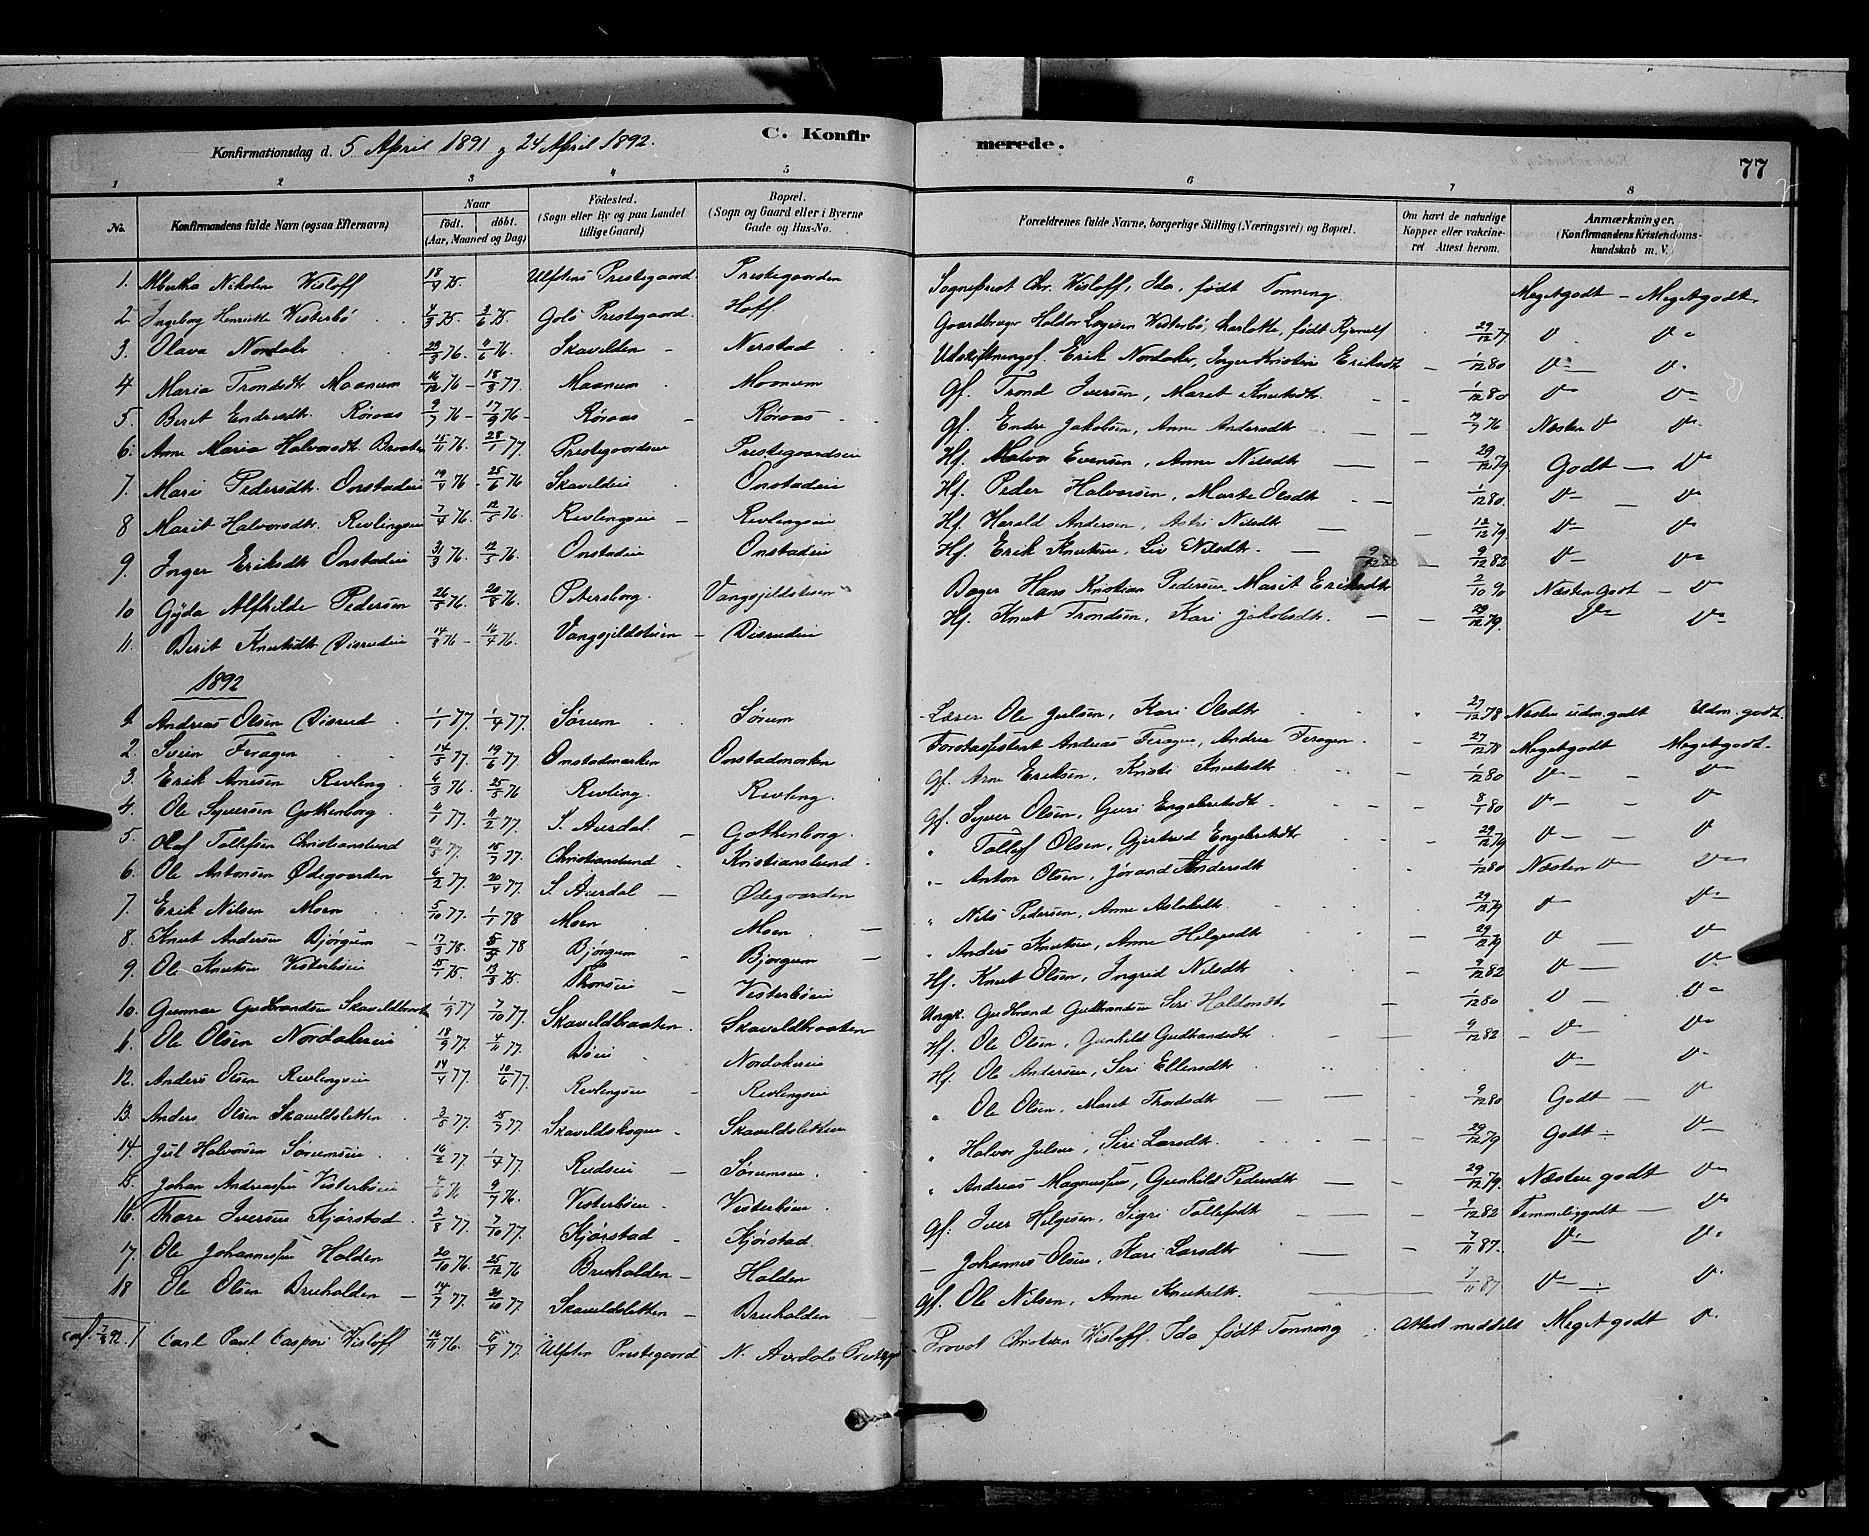 Konfirmationsdag d. 5 April 1891 g 24 April 1892.
C. Konfirmerede.
77
1 2 3 4 5 6 7 8
No. Konfirmandens fulde Navn (ogsaa Efternavn) Naar født. døbt. (Aar, Maaned og Dag) Fødested. (Sogn eller By og paa Landet tillige Gaard) Bopæl. (Sogn og Gaard eller i Byerne Gade og Hus-No. Forældrenes fulde Navne, borgerlige Stilling (Næringsvei) og Bopæl. Om havt de naturlige Kopper eller vakcineret. Attest herom. Anmærkninger. (Konfirmandens Kristendomskundskab m. V.)
1. Nikoline Wisloff 18/4 75. Ulfstens Prestegaard Prestegaarden Sogneprest Chr. Wisloff, Ida, født Tonning. Megetgodt - Megetgodt.
2 Ingeborg Henriette Vesterbø 75. 75. Gols Prestegaard. Hoff. Gaardbruger Haldor Vesterbø, Charlotte, født 29/12 77 v. v.
3. Olava Nordaker 23/3 76. 11/6 76. Skavelden Nerstad Erik Nordaker, Inger Kristine Eriksdt 1/12 80 v v.
4 Maria Trondsdt Maanum 16/12 76 18/3 77. Maanum Maanum Gf. Trond Iversen, Marit Knutsdt. 1/12 80 v v
5. Beret Endresdt. Røraas 9/7 76 17/9 76 Røraas Røraas Gf. Endre Jakobsen, Anne Andersdt 76 Næsten v v
6. Anne Maria Halvorsdt Braaten 15/11 76. 28/1 77. Prestegaardseie Prestegaardseie Hf. Halvor Evensen, Anne Nilsdt 29/12 79 Godt v
7. Mari Pedersdt. Onstadeie 19/4 76 25/6 76 Skaveldeie Onstadeie Hf. Peder Halvorsen, Marte Olsdt 1/12 80. v v
8 Marit Halvorsdt. Revlingseie 7/4 76. 12/5 76. Revlingseie Revlingseie Hf. Harald Andersen, Astri Nilsdt 12/12 79 v v
9. Inger Eriksdt Onstadeie 31/3 76. 12/5 76. Onstadeie Onstadeie Hf. Erik Knutsen, Liv Nilsdt. 9/12 82 v v
10 Gyda Alfhilde Pedersen 26/5 76. 20/8 76. Petersborg. Hans Kristian Pedersen, Marit Eriksdt 2/10 90 Næsten Godt v
11. Berit Knutsdt. Disrudeie 14/3 76 16/4 76. Disrudeie Hf. Knut Trondsen, Kari Jakobsdt. 29/12 79. v v
1892
1. Andreas Olsen Disrud 1/1 77. 1/4 77. Sørum Sørum Lærer Ole Julsen, Kari Olsdt 27/12 78 Næsten udm. godt Udm. godt.
2. Svein Feragen 14/5 77. 19/6 77 Onstadmarken Onstadmarken Andreas Feragen, Andrea Feragen. 27/12 78 Megetgodt Megetgodt.
3. Erik Arnesen Revling 6/3 76. 25/5 76 Revling. Revling. Gf. Arne Eriksen, Kristi Knutsdt 1/12 80 v v
4. Ole Syversen Gothenborg. 77. 11/2 77. S. Aurdal. Gothenborg. Gf. Syver Olsen, Guri Engebretsdt. 8/1 80 v v
5. Olaf Tollefsen Christianslund 77. 15/7 77. Christianslund Kristianslund. " Tollef Olsen, Gjertrud Engebretsdt 29/12 79 v v
6. Ole Antonsen Ødegaarden 6/2 77. 20/4 77. S. Aurdal Ødegaarden " Anton Olsen, Jørand Andersdt 1/12 80 Næsten v v
7. Erik Nilsen Moen 5/10 77. 1/1 78 Moen. Moen " Nils Pedersen, Anne Aslaksdt. 29/12 79 v v
8. Knut Andersen Bjørgum 17/3 78. 78 Bjørgum Bjørgum " Anders Knutsen, Anne Helgesdt 29/12 79 v v
9. Ole Knutsen Vesterbøeie 15/1 75. 13/3 75. Thonseie Vesterbøeie Hf. Knut Olsen, Ingrid Nilsdt 9/12 82 v v
10. Gunnar Gudbrandsen Skaveldbraaten 77 7/10 77. Skaveldbraaten. Skaveldbraaten Ungk. Gudbrand Gudbrandsen Siri Haldorsdt 1/12 80 v v
11. Ole Olsen Nordakereie 18/9 77. 4/11 77. Bøeie Nordakereie Hf. Ole Olsen, Gunhild Gudbrandsdt. 9/12 82 v v
12. Anders Olsen Revlingseie 14/4 77. 10/6 77. Revlingseie Revlingseie Hf. Ole Andersen, Siri Ellensdt v v
13. Anders Olsen Skaveldsletten 3/5 77. 15/7 77. Skaveldskogen Skaveldsletten " Ole Olsen, Marit Thordsdt 9/12 80 Godt v
14. Jul Halvorsen Sørumseie 16/2 77. 1/4 77. Rudseie Sørumseie. " Halvor Julsen, Siri Larsdt. 29/12 79 Godt v
15. Johan Andreassen Vesterbøeie 4/6 76 9/7 76. Vesterbøeie. Vesterbøeie. " Andreas Magnussen, Gunhild Pedersdt 29/12 79. Næsten godt v
16. Thore Iversen Kjørstad. 2/8 77. 7/10 77. Kjørstad Kjørstad. Gf. Iver Helgesen, Sigri Tollefsdt 9/12 82 Temmeliggodt v
17. Ole Johannessen Halden 20/10 76. 25/12 76 Bruhalden Halden Johannes Olsen, Kari Larsdt 7/11 87. v v
18 Ole Olsen Bruhalden 14/7 77. 20/10 77. Skaveldsletten Bruhalden Gf. Ole Nilsen, Anne Knutsdt. 7/11 87 v v
conf. 7/8 92. 1 Carl Paul Caspari Wisloff 16/11 76. 77. Ulfsten Prestegaard N. Aurdals Provst Christian Wisloff. Ida født Tonning Attest meddelt Megetgodt v.